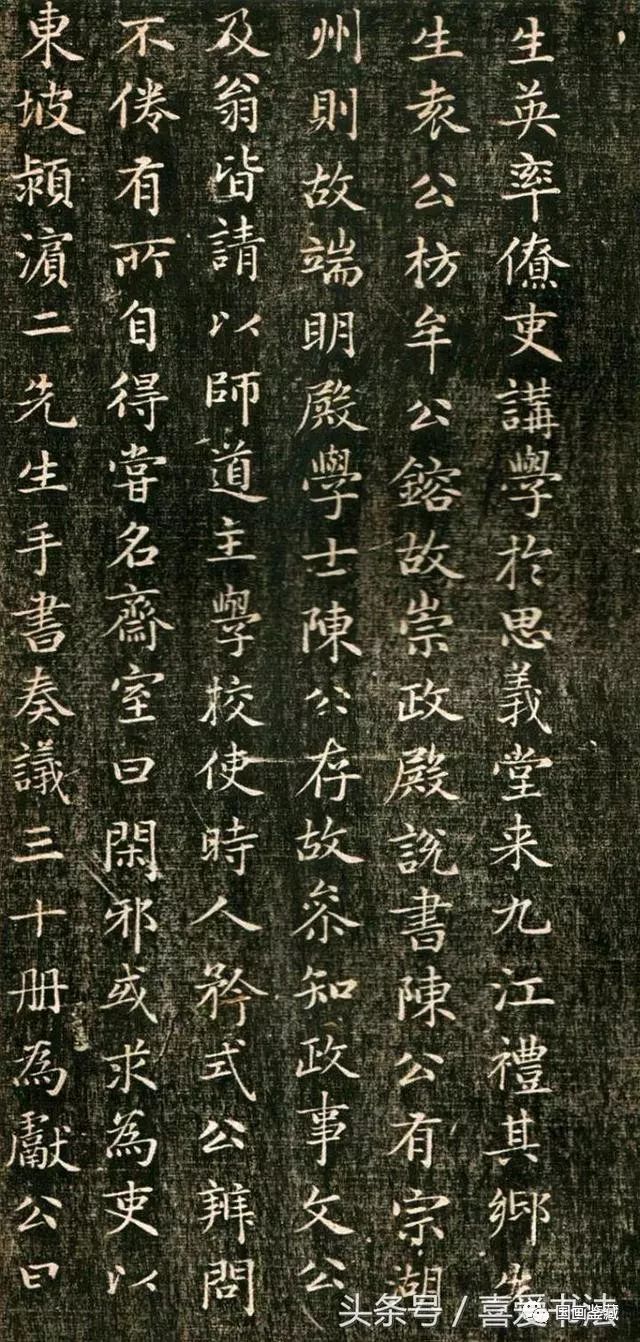 生英率僚吏講學於思義堂来九江禮其鄉先
生袁公枋牟公鎔故崇政殿説書陳公有宗湖
州則故端明殿學士陳公存故叅知政事文公
及翁皆請以師道主學校使時人矜式公辨問
不倦有所自得嘗名齋室曰閑邪或求為吏以
東坡潁濵二先生手書奏議三十册為獻公曰
头条号／喜爱书法
国画鉴藏